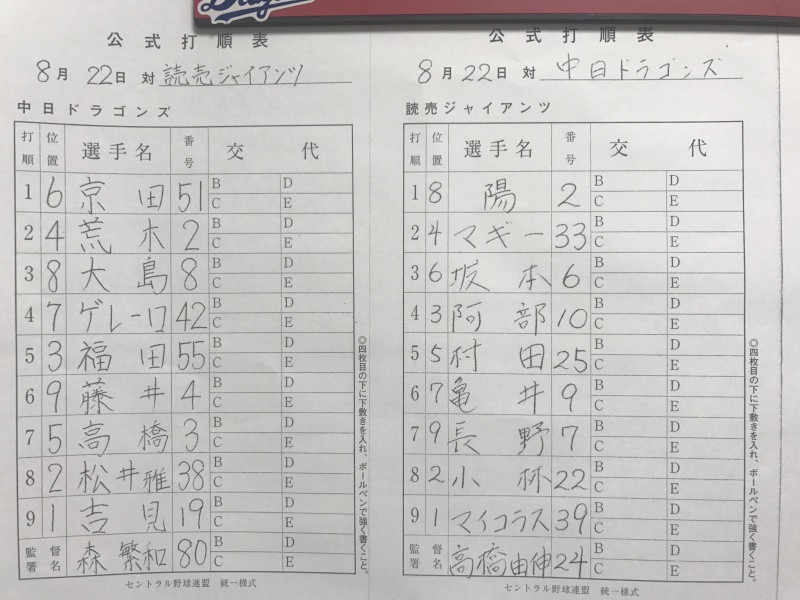 Dragons
公式打順表
8月 22日 対 読売ジャイアンツ
中日ドラゴンズ
打順 位置 選手名 番号 交代
1 6 京田 51 B D C E
2 4 荒木 2 B D C E
3 8 大島 8 B D C E
4 7 ゲレーロ 42 B D C E
5 3 福田 55 B D C E
6 9 藤井 4 B D C E
7 5 高橋 3 B D C E
8 2 松井雅 38 B D C E
9 1 吉見 19 B D C E
監督署名 森繁和 80 B D C E
セントラル野球連盟 統一様式
◎四枚目の下に下敷きを入れ、ボールペンで強く書くこと。
公式打順表
8月 22日 対 中日ドラゴンズ
読売ジャイアンツ
打順 位置 選手名 番号 交代
1 8 陽 2 B D C E
2 4 マギー 33 B D C E
3 6 坂本 6 B D C E
4 3 阿部 10 B D C E
5 5 村田 25 B D C E
6 7 亀井 9 B D C E
7 9 長野 7 B D C E
8 2 小林 22 B D C E
9 1 マイコラス 39 B D C E
監督署名 高橋由伸 24 B D C E
セントラル野球連盟 統一様式
◎四枚目の下に下敷きを入れ、ボールペンで強く書くこと。